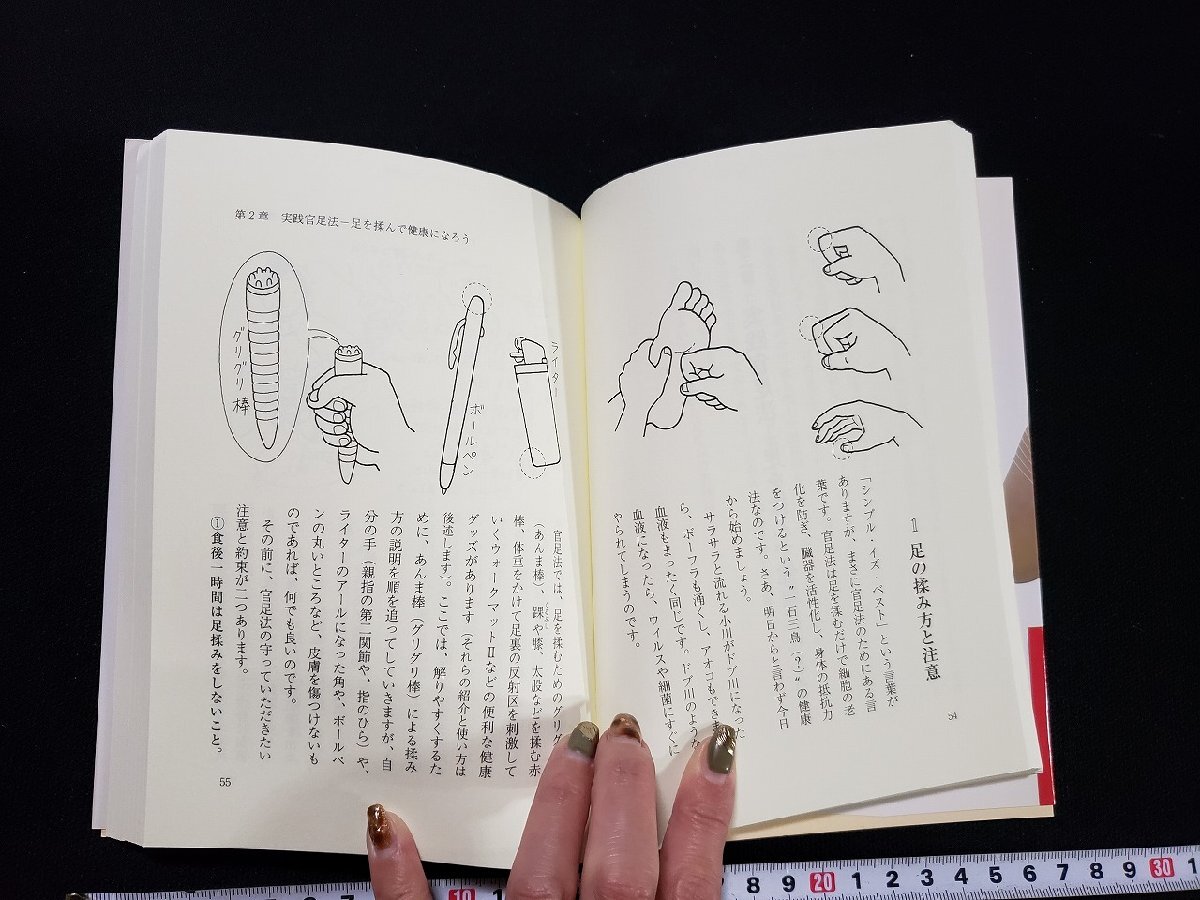 1 足の揉み方と注意
「シンプル・イズ・ベスト」という言葉が
ありますが、まさに官足法のためにある言
葉です。官足法は足を揉むだけで細胞の老
化を防ぎ、臓器を活性化し、身体の抵抗力
をつけるという〝一石三鳥(?)〟の健康
法なのです。さあ、明日からと言わず今日
から始めましょう。
サラサラと流れる小川がドブ川になった
ら、ボーフラも湧くし、アオコもできま
血液もまったく同じです。ドブ川のような
血液になったら、ウイルスや細菌にすぐに
やられてしまうのです。
54
第2章 実践官足法－足を揉んで健康になろう
グリグリ棒
ボールペン
ライター
官足法では、足を揉むためのグリグ
(あんま棒)、踝や膝、太股などを揉む赤
棒、体重をかけて足裏の反射区を刺激して
いくウォークマットⅡなどの便利な健康
グッズがあります(それらの紹介と使い方は
後述します)。ここでは、解りやすくするた
めに、あんま棒(グリグリ棒)による揉み
方の説明を順を追ってしていきますが、自
分の手(親指の第二関節や、指のひら)や、
ライターのアールになった角や、ボールペ
ンの丸いところなど、皮膚を傷つけないも
のであれば、何でも良いのです。
その前に、官足法の守っていただきたい
注意と約束が二つあります。
①食後一時間は足揉みをしないこと。
55
10
8 9 20 1 2 3 4 5 6 7 8 9 30 1